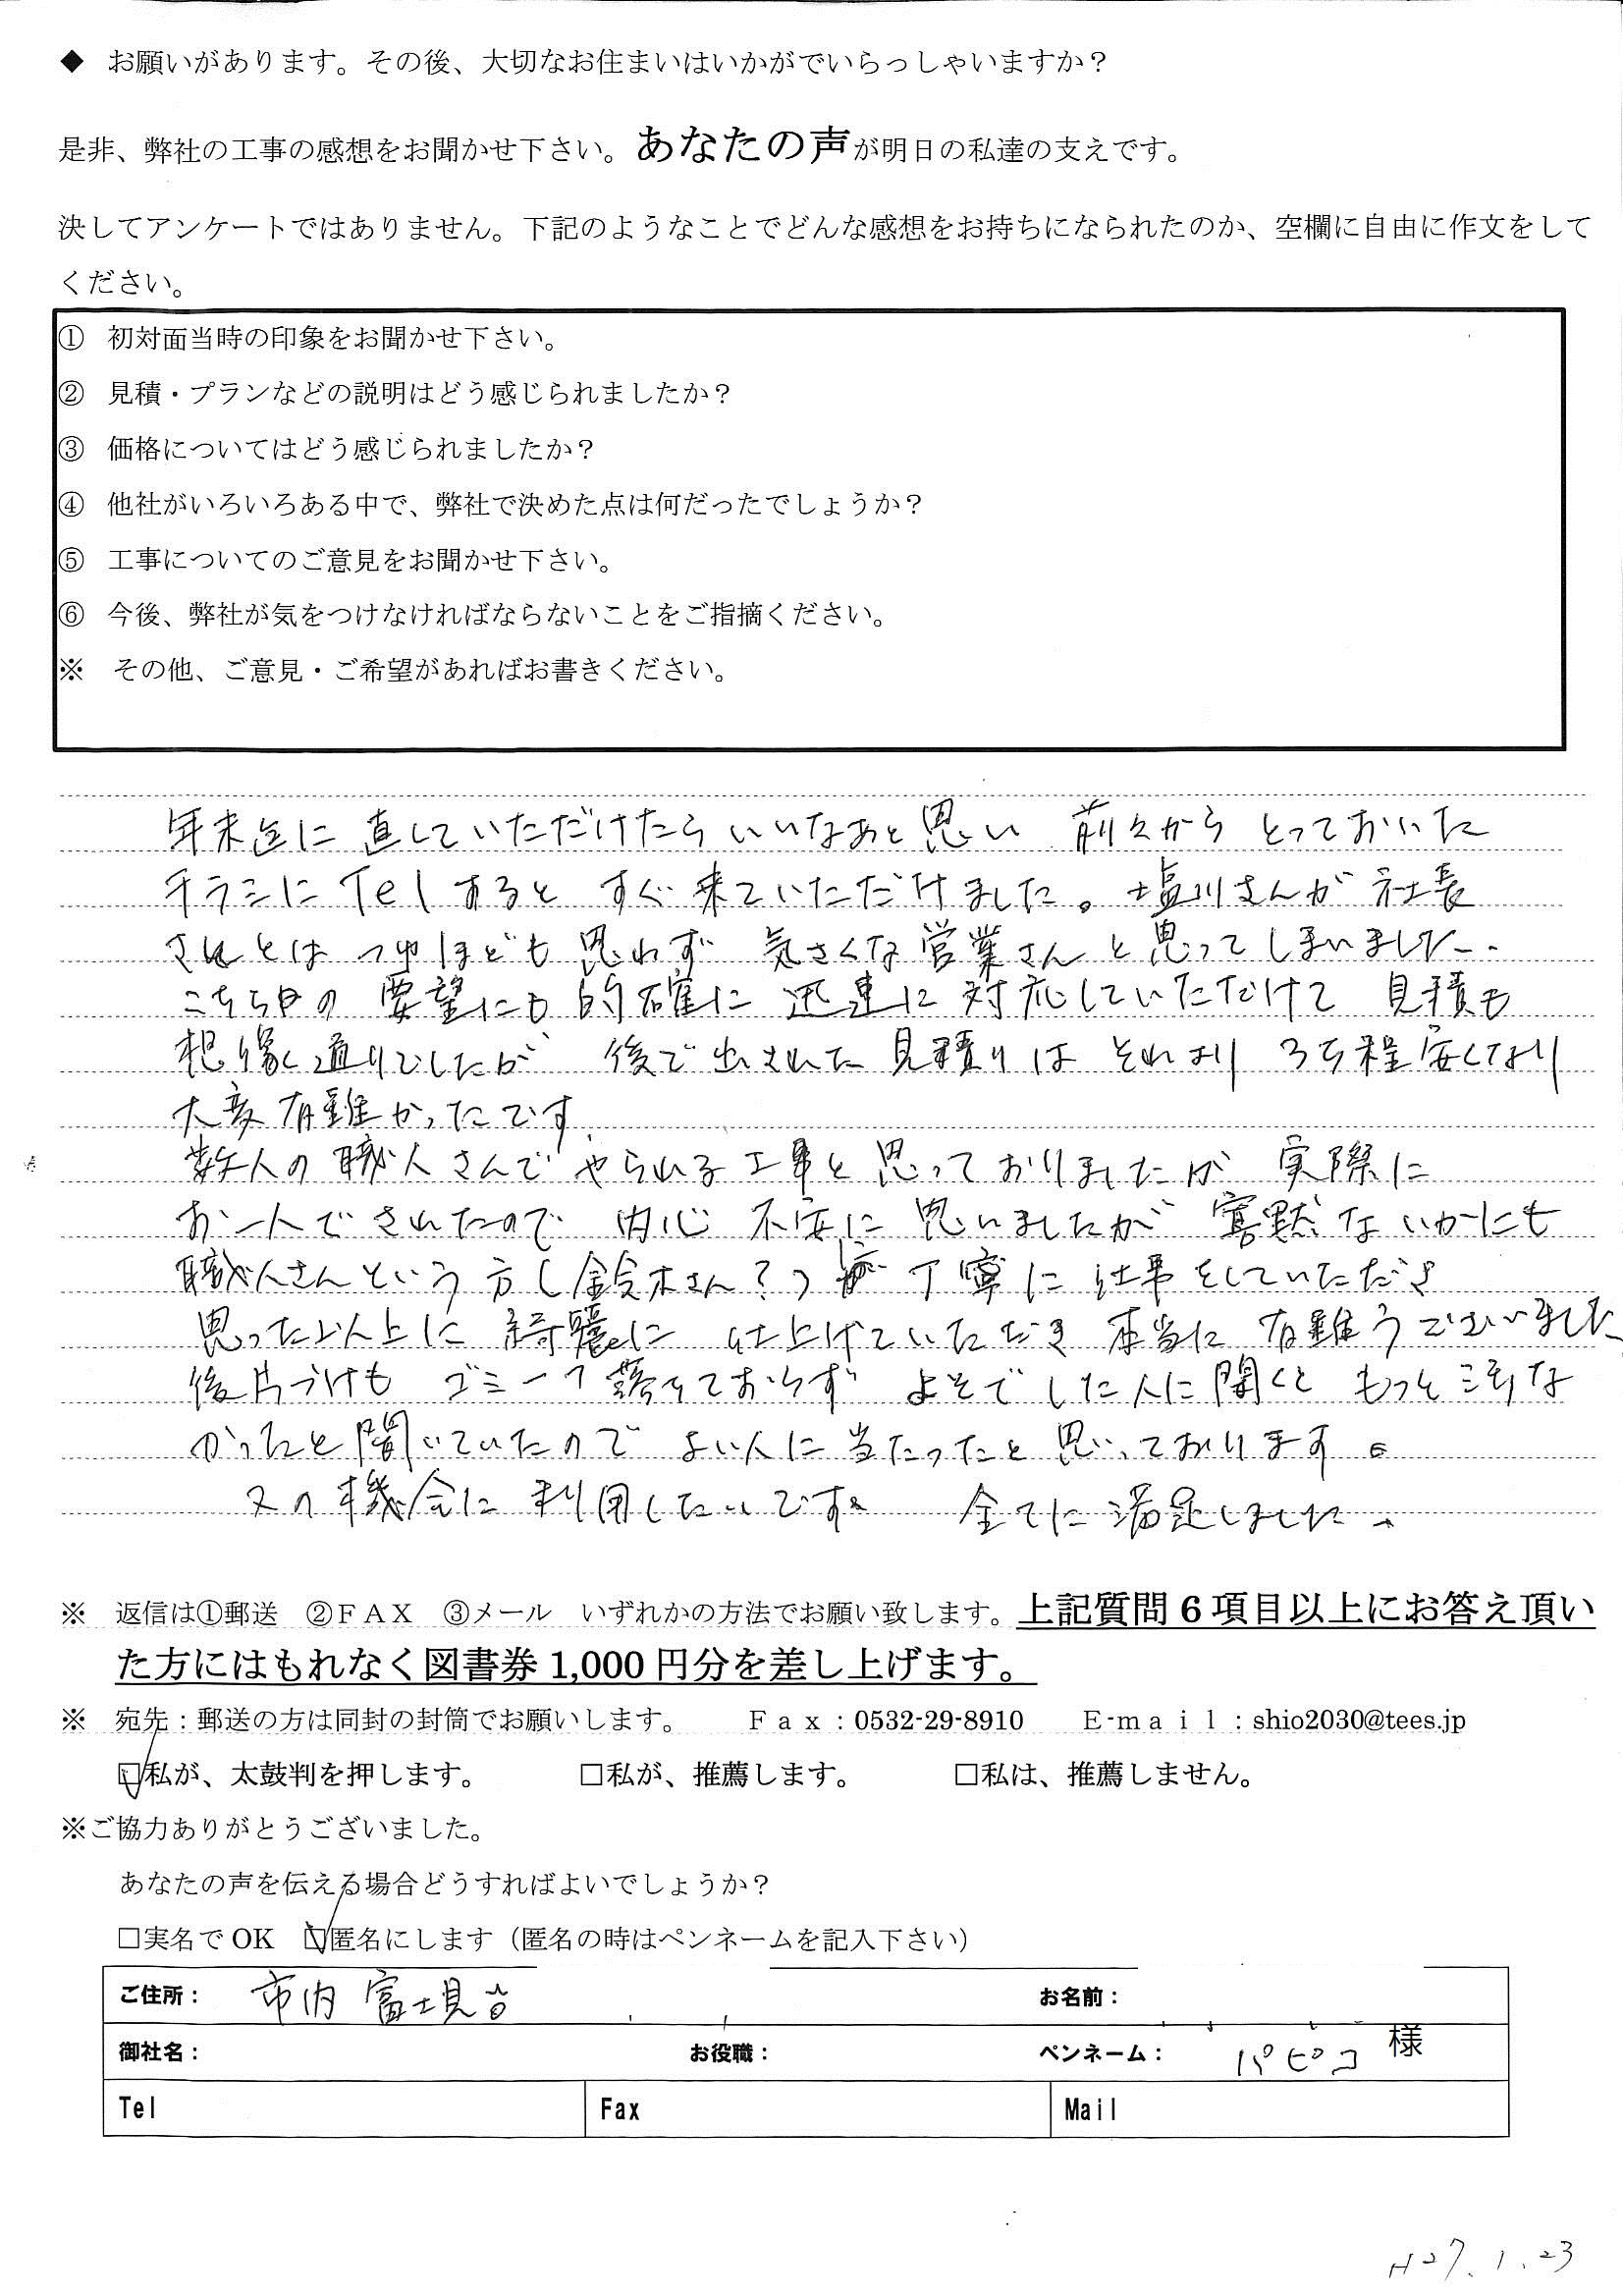 ◆ お願いがあります。その後、大切なお住まいはいかがでいらっしゃいますか？
是非、弊社の工事の感想をお聞かせ下さい。あなたの声が明日の私達の支えです。
決してアンケートではありません。下記のようなことでどんな感想をお持ちになられたのか、空欄に自由に作文をして
ください。
① 初対面当時の印象をお聞かせ下さい。
② 見積・プランなどの説明はどう感じられましたか？
③ 価格についてはどう感じられましたか？
④ 他社がいろいろある中で、弊社で決めた点は何だったでしょうか？
⑤ 工事についてのご意見をお聞かせ下さい。
⑥ 今後、弊社が気をつけなければならないことをご指摘ください。
※ その他、ご意見・ご希望があればお書きください。
年末迄に 直していただけたらいいなぁと思い 前々から とっておいた
チラシに Tel すると すぐ来ていただけました。塩川さんが 社長
さんとは つゆほども 思わず 気さくな営業さんと思ってしまいました.
こちらの 要望にも 的確に 迅速に 対応していただけて 見積も
想像通りでしたが 後で出された見積りは それより 3万程安くなり
大変有難かったです
数人の職人さんで やられる工事と思っておりましたが 実際に
お一人でされたので 内心 不安に思いましたが 寡黙な いかにも
職人さんという方(鈴木さん?)が 丁寧に仕事をしていただき
思った以上に 綺麗に 仕上げていただき 本当に 有難うございました
後片づけも ゴミ一つ落ちておらず よそでした人に聞くと もっと 汚な
かったと聞いていたので よい人に当たったと思っております。
又の機会に利用したいです。 全てに満足しました.
※ 返信は①郵送 ②ＦＡＸ ③メール いずれかの方法でお願い致します。上記質問 6 項目以上にお答え頂い
た方にはもれなく図書券 1,000 円分を差し上げます。
※ 宛先：郵送の方は同封の封筒でお願いします。 Ｆａｘ：0532-29-8910 Ｅ-ｍａｉｌ：shio2030@tees.jp
☑私が、太鼓判を押します。 □私が、推薦します。 □私は、推薦しません。
※ご協力ありがとうございました。
あなたの声を伝える場合どうすればよいでしょうか？
□実名で OK ☑匿名にします（匿名の時はペンネームを記入下さい）
ご住所： 市内 富士見台 お名前：
御社名： お役職： ペンネーム： パピコ 様
Tel Fax Mail
H27.1.23